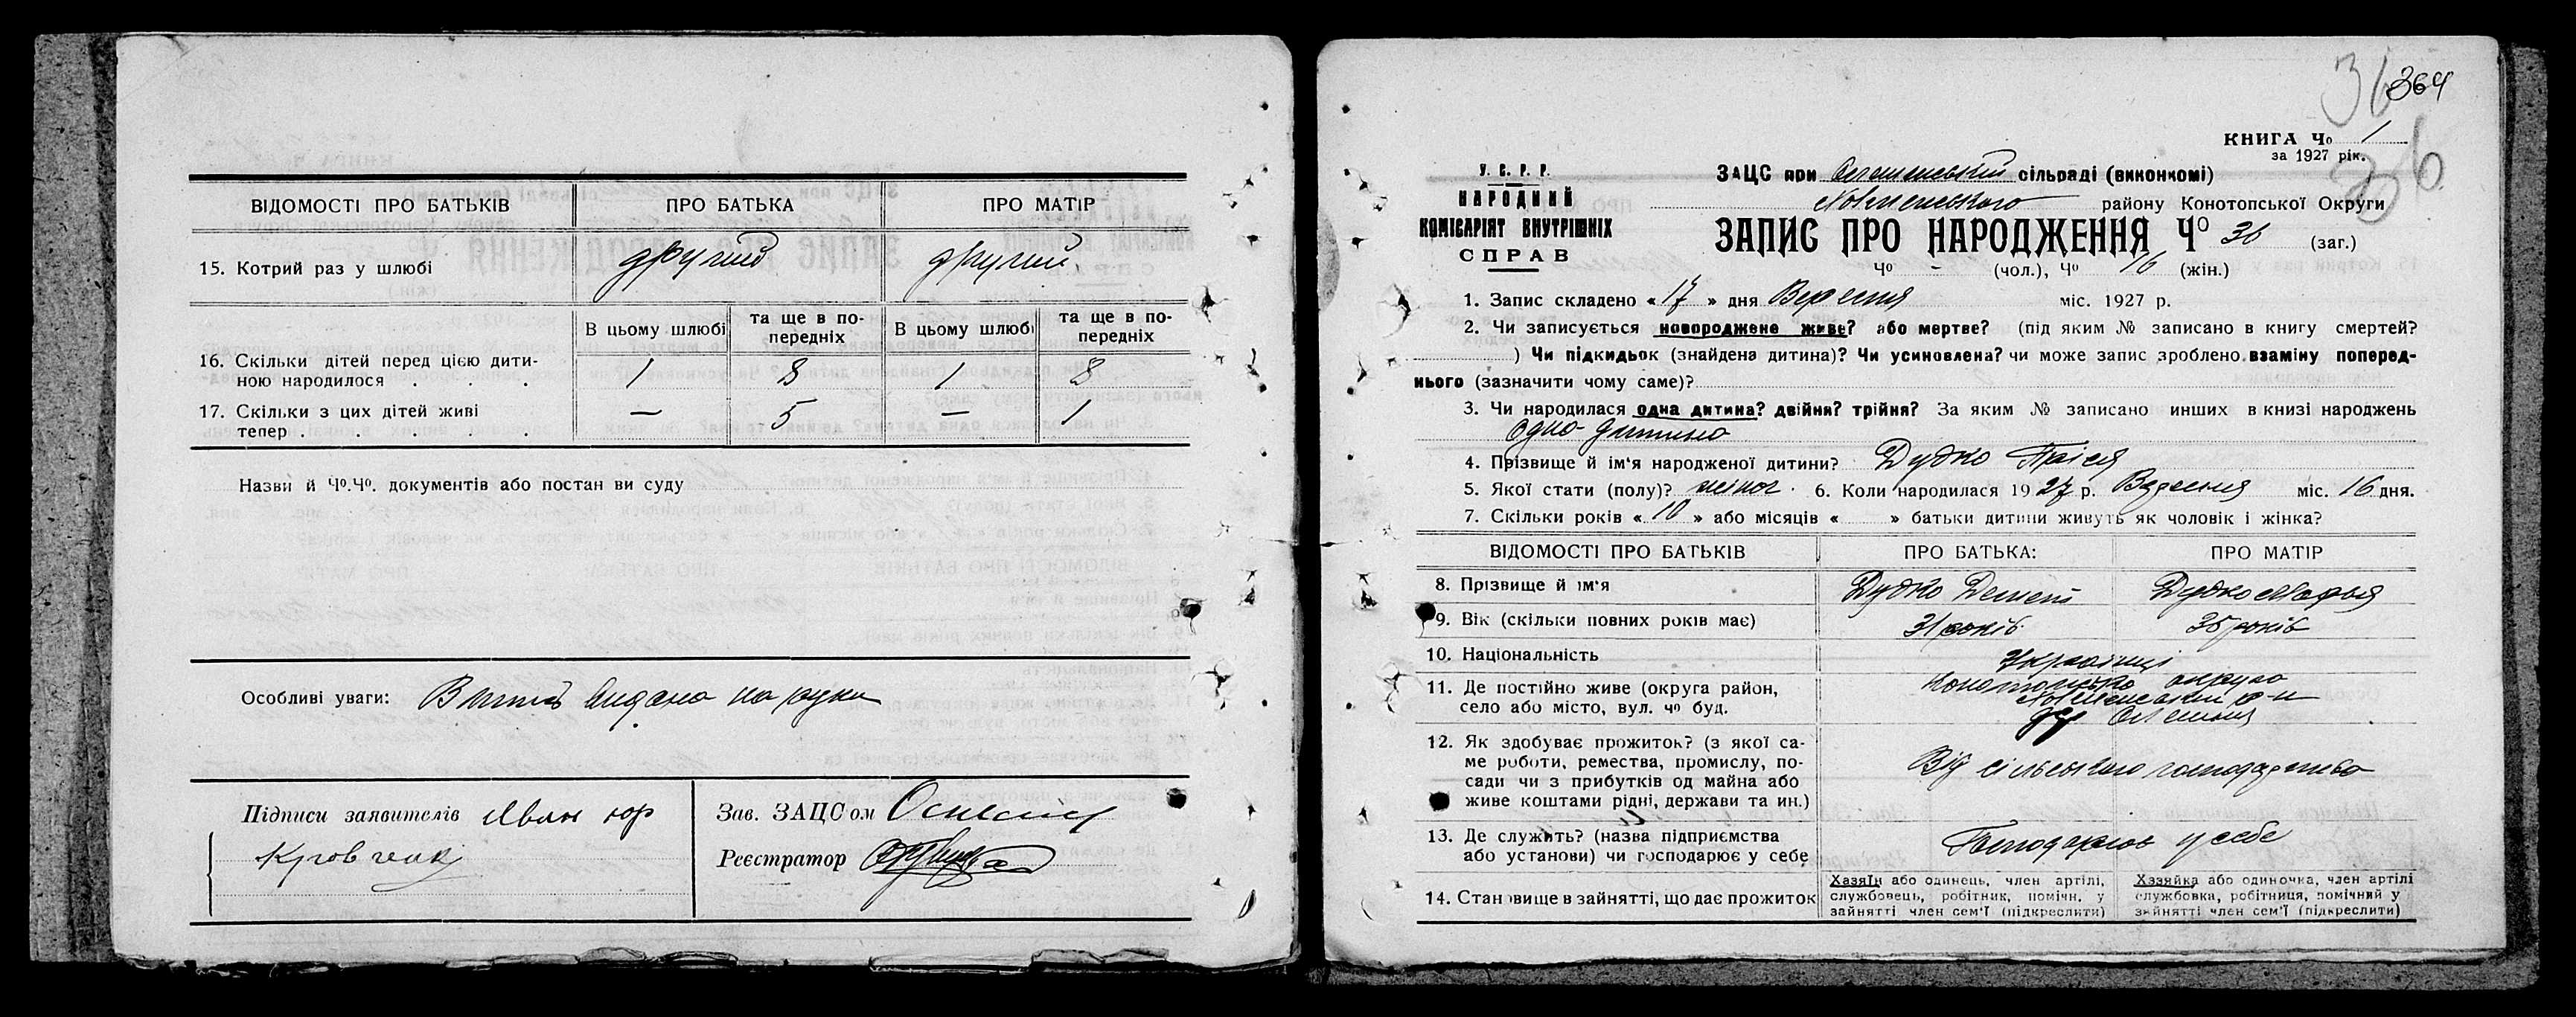 ВІДОМОСТІ ПРО БАТЬКІВ ПРО БАТЬКА ПРО МАТІР
15. Котрий раз у шлюбі другий другий
В цьому шлюбі та ще в по-передніх В цьому шлюбі та ще в по-передніх
16. Скільки дітей перед цією дити-
ною народилося . . . 1 8 1 8
17. Скільки з цих дітей живі
тепер . . . . . — 5 — 1
Назви й Чо.Чо. документів або постан ви суду
Особливі уваги: видано на руки
Підписи заявителів
Зав. ЗАЦСом
Реєстратор
364
36
36
КНИГА Чо 1
за 1927 рік.
У. С. Р. Р.
НАРОДНИЙ
КОМІСАРІЯТ ВНУТРІШНІХ
СПРАВ
ЗАЦС при сільраді (виконкомі)
району Конотопської Округи
ЗАПИС ПРО НАРОДЖЕННЯ Чо 36 (заг.)
Чо - (чол.), Чо 16 (жін.)
1. Запис складено «17» дня Вересня міс. 1927 р.
2. Чи записується новороджене живе? або мертве? (під яким № записано в книгу смертей?
) Чи підкидьок (знайдена дитина)? Чи усиновлена? чи може запис зроблено взаміну поперед-
нього (зазначити чому саме)?
3. Чи народилася одна дитина? двійня? трійня? За яким № записано инших в книзі народжень
Одна дитина
4. Прізвище й ім'я народженої дитини? Дудко
5. Якої стати (полу)? жіноч. 6. Коли народилася 1927 р. Вересня міс. 16 дня.
7. Скільки років «10» або місяців « » батьки дитини живуть як чоловік і жінка?
ВІДОМОСТІ ПРО БАТЬКІВ ПРО БАТЬКА: ПРО МАТІР
8. Прізвище й ім'я Дудко Демет Дудко Марья
9. Вік (скільки повних років має) 31 років 35 років
10. Національність Українці
11. Де постійно живе (округа район, Конотопська округа
село або місто, вул. чо буд. р-н
12. Як здобуває прожиток? (з якої са-
ме роботи, ремества, промислу, по-
сади чи з прибутків од майна або
живе коштами рідні, держави та ин.) Від сільського господарства
13. Де служить? (назва підприємства
або установи) чи господарює у себе Господарює у себе
14. Становище в зайнятті, що дає прожиток
Хазяїн або одинець, член артілі,
службовець, робітник, помічн. у
зайнятті член сем'ї (підкреслити)
Хазяйка або одиночка, член артілі
службовка, робітниця, помічний у
зайнятті член сем'ї (підкреслити)